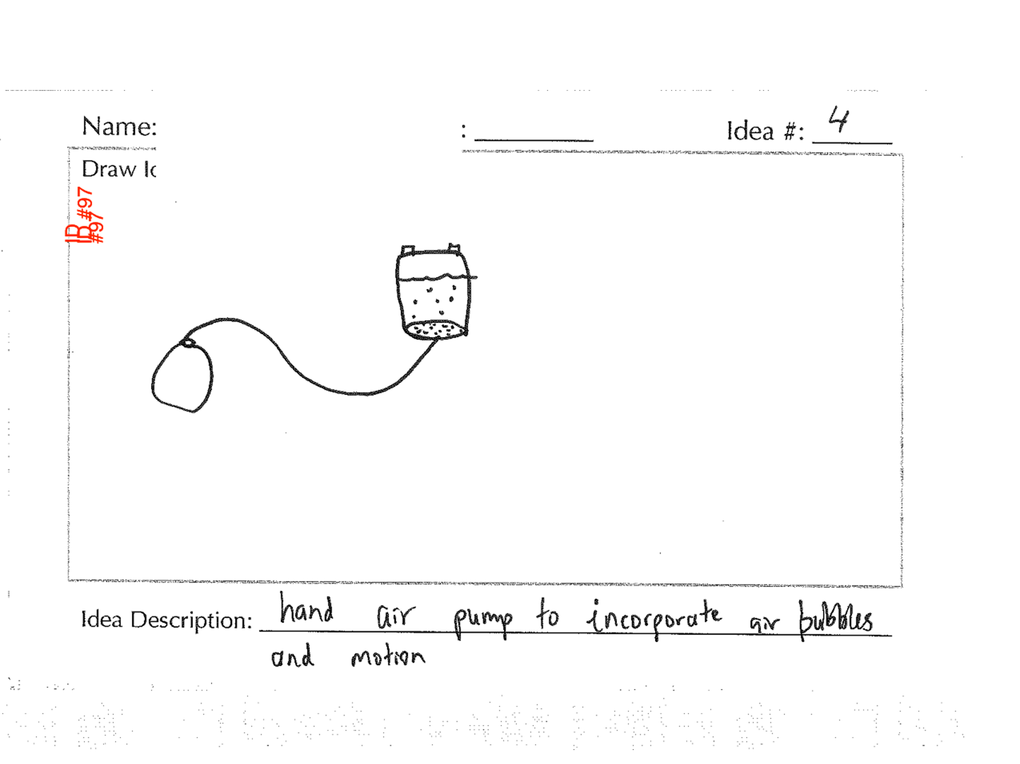 Name: : Idea #: 4
Draw Id
ID #97
ID #97
Idea Description: hand air pump to incorporate air bubbles
and motion